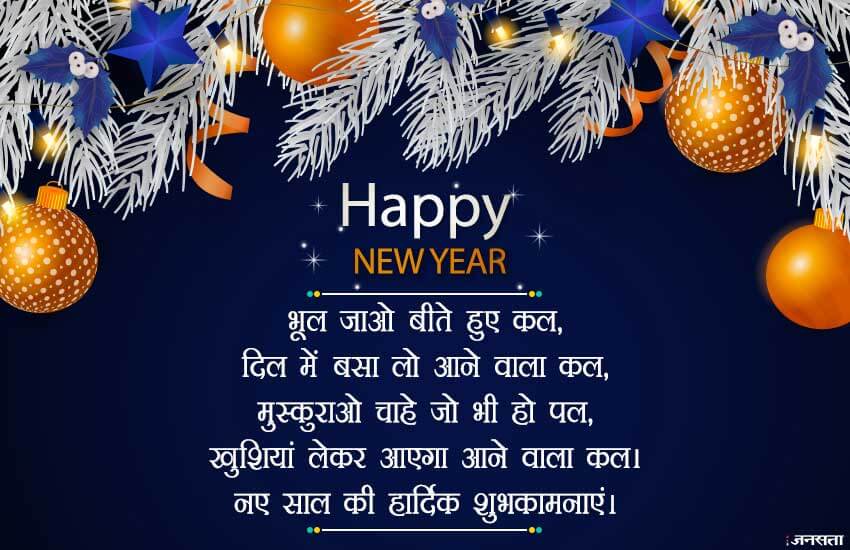 Happy
NEW YEAR
भूल जाओ बीते हुए कल,
दिल में बसा लो आने वाला कल,
मुस्कुराओ चाहे जो भी हो पल,
खुशियां लेकर आएगा आने वाला कल।
नए साल की हार्दिक शुभकामनाएं।
जनसत्ता